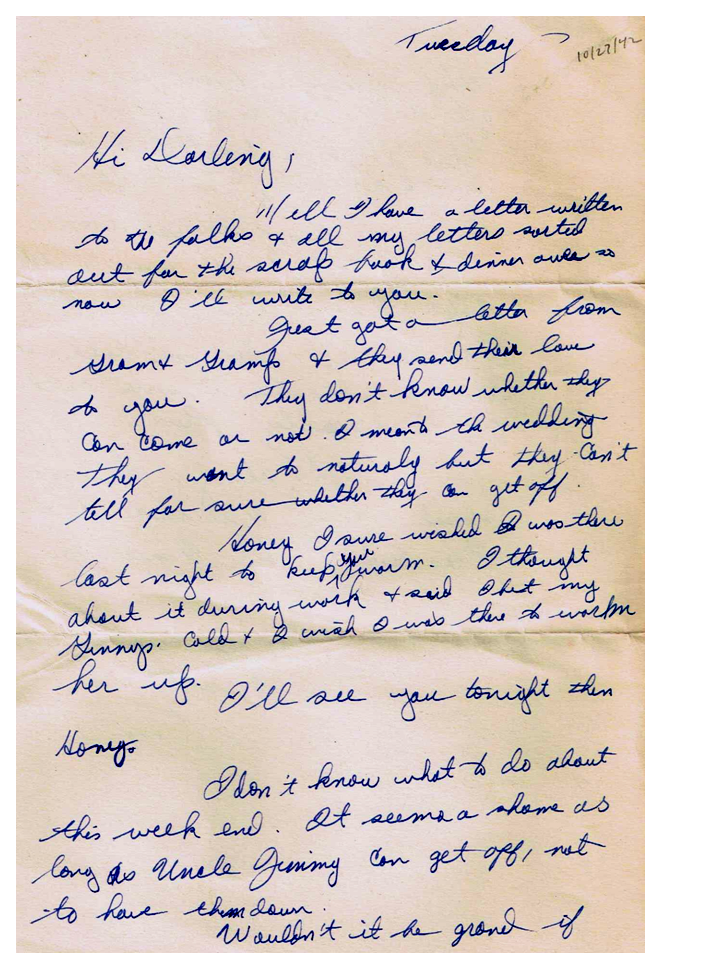 Tuesday
10/27/42
Hi Darling,
Well I have a letter written
to the folks & all my letters sorted
out for the scrap book & dinner over so
now I'll write to you.
Just got a letter from
Gram & Gramp & they send their love
to you. They don't know whether they
can come or not. I meant the wedding
They want to naturaly but they can't
tell for sure whether they can get off.
Honey I sure wished I was there
last night to keep you warm. I thought
about it during work & said I bet my
Ginnys. cold & I wish I was there to warm
her up.
I'll see you tonight then
Honey.
I don't know what to do about
this week end. It seems a shame as
long as Uncle Jimmy can get off, not
to have them down.
Wouldn't it be grand if